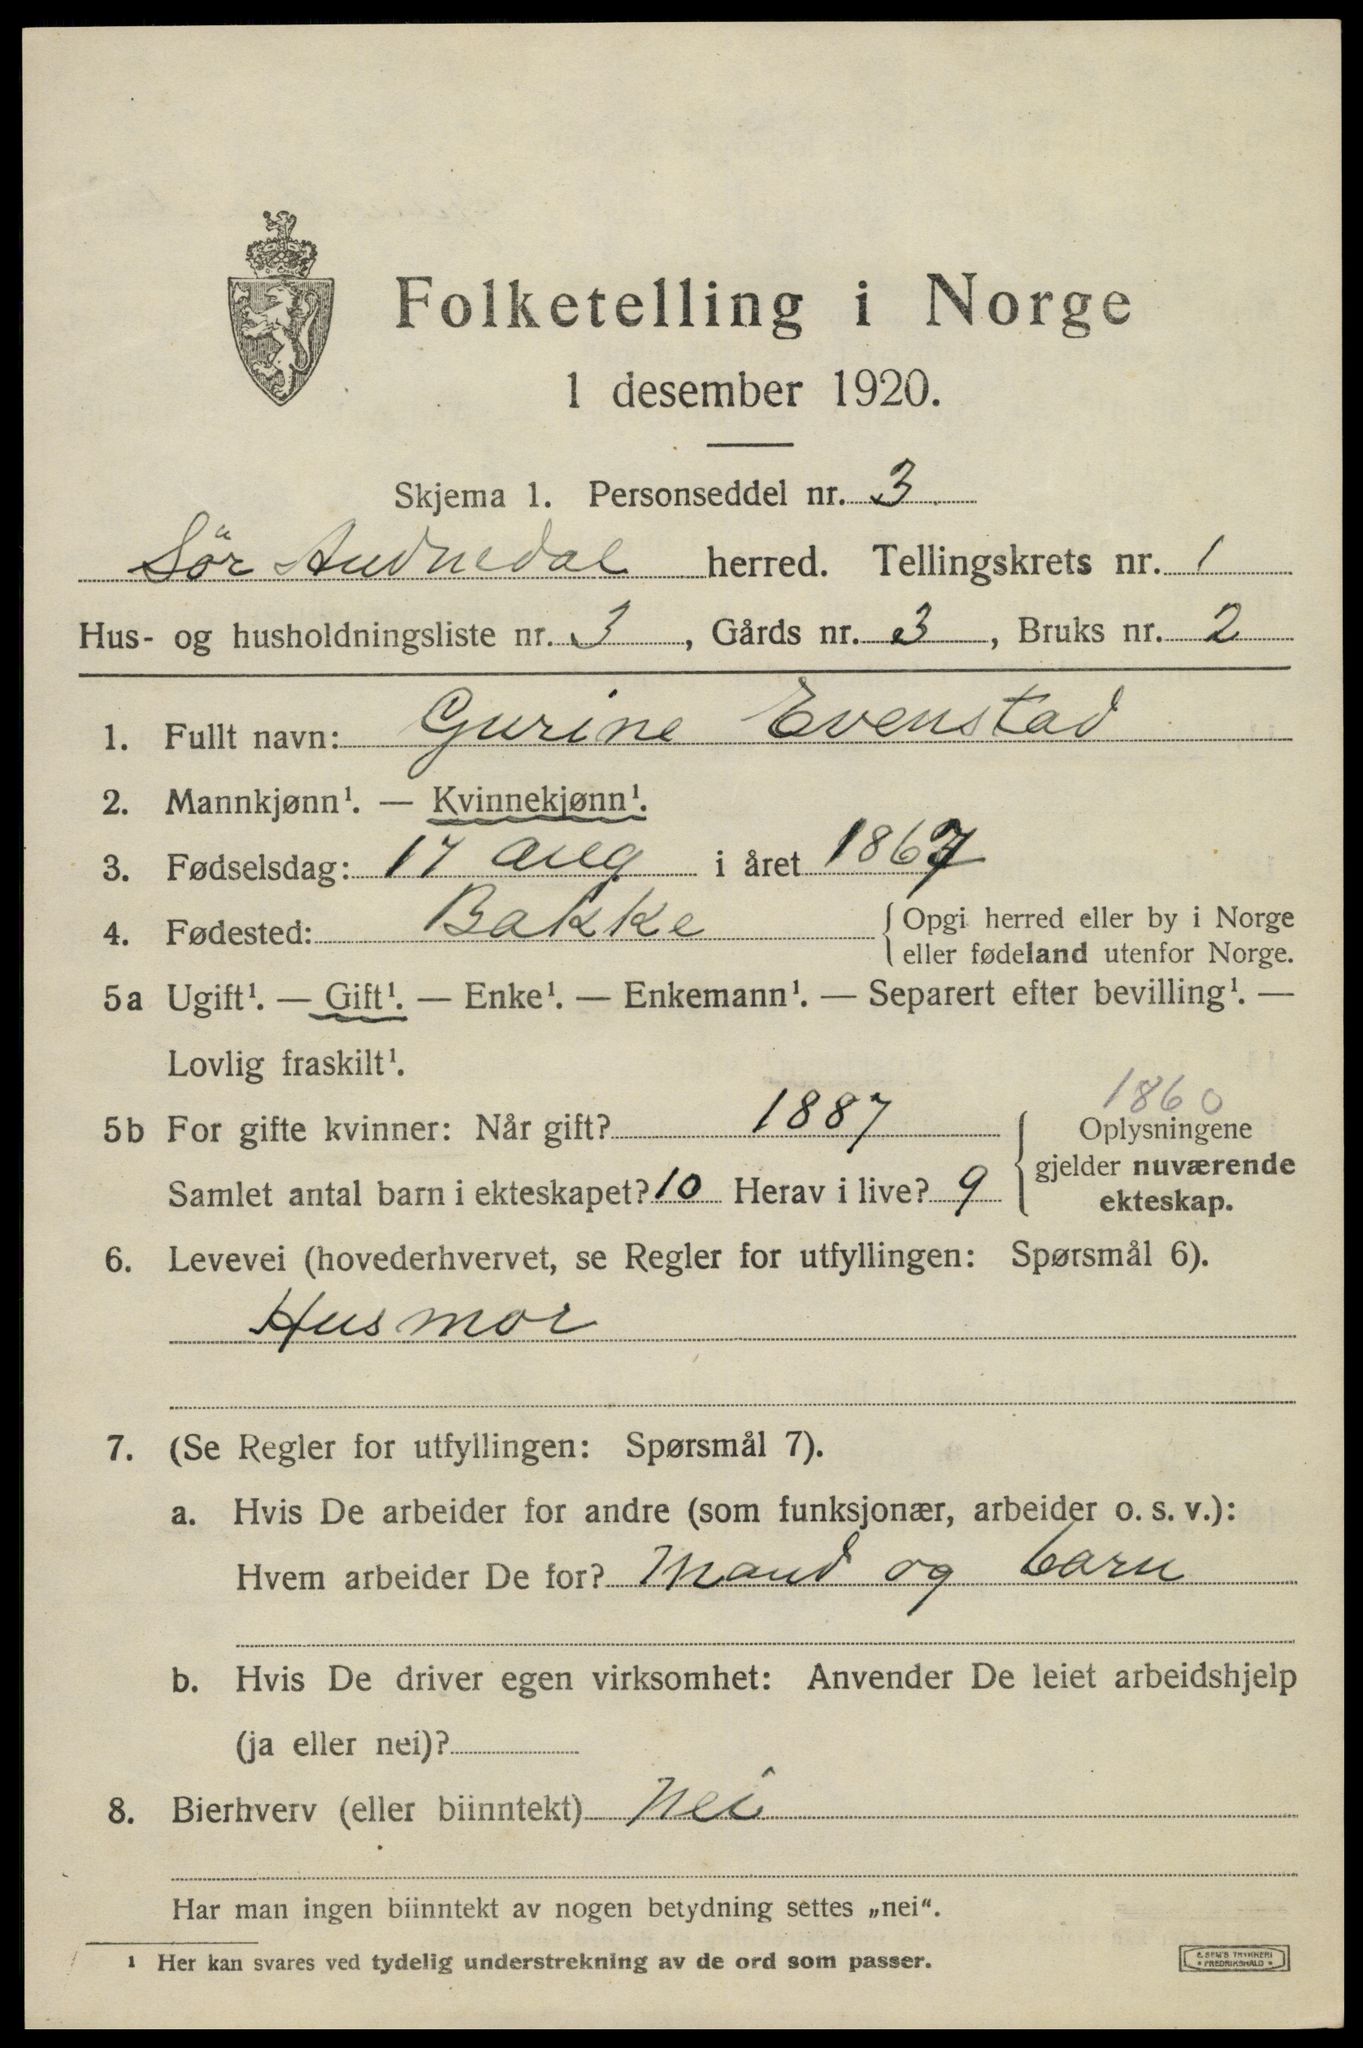 Folketelling i Norge
1 desember 1920.
Skjema 1. Personseddel nr. 3
Sör Audnedal herred. Tellingskrets nr. 1
Hus- og husholdningsliste nr. 3, Gårds nr. 3, Bruks nr. 2
1. Fullt navn: Gurine Evenstad
2. Mannkjønn¹. — Kvinnekjønn¹.
3. Fødselsdag: 17 aug i året 1867
4. Fødested: Bakke { Opgi herred eller by i Norge
eller fødeland utenfor Norge.
5a Ugift¹. — Gift¹. — Enke¹. — Enkemann¹. — Separert efter bevilling¹. —
Lovlig fraskilt¹.
1860
5b For gifte kvinner: Når gift? 1887 { Oplysningene
gjelder nuværende
Samlet antal barn i ekteskapet? 10 Herav i live? 9
ekteskap.
6. Levevei (hovederhvervet, se Regler for utfyllingen: Spørsmål 6).
Husmor
7. (Se Regler for utfyllingen: Spørsmål 7).
a. Hvis De arbeider for andre (som funksjonær, arbeider o. s. v.):
Hvem arbeider De for? Mand og barn
b. Hvis De driver egen virksomhet: Anvender De leiet arbeidshjelp
(ja eller nei)?
8. Bierhverv (eller biinntekt) Nei
Har man ingen biinntekt av nogen betydning settes „nei“.
¹ Her kan svares ved tydelig understrekning av de ord som passer.
E. SEM'S TRYKKERI
* FREDRIKSHALD *